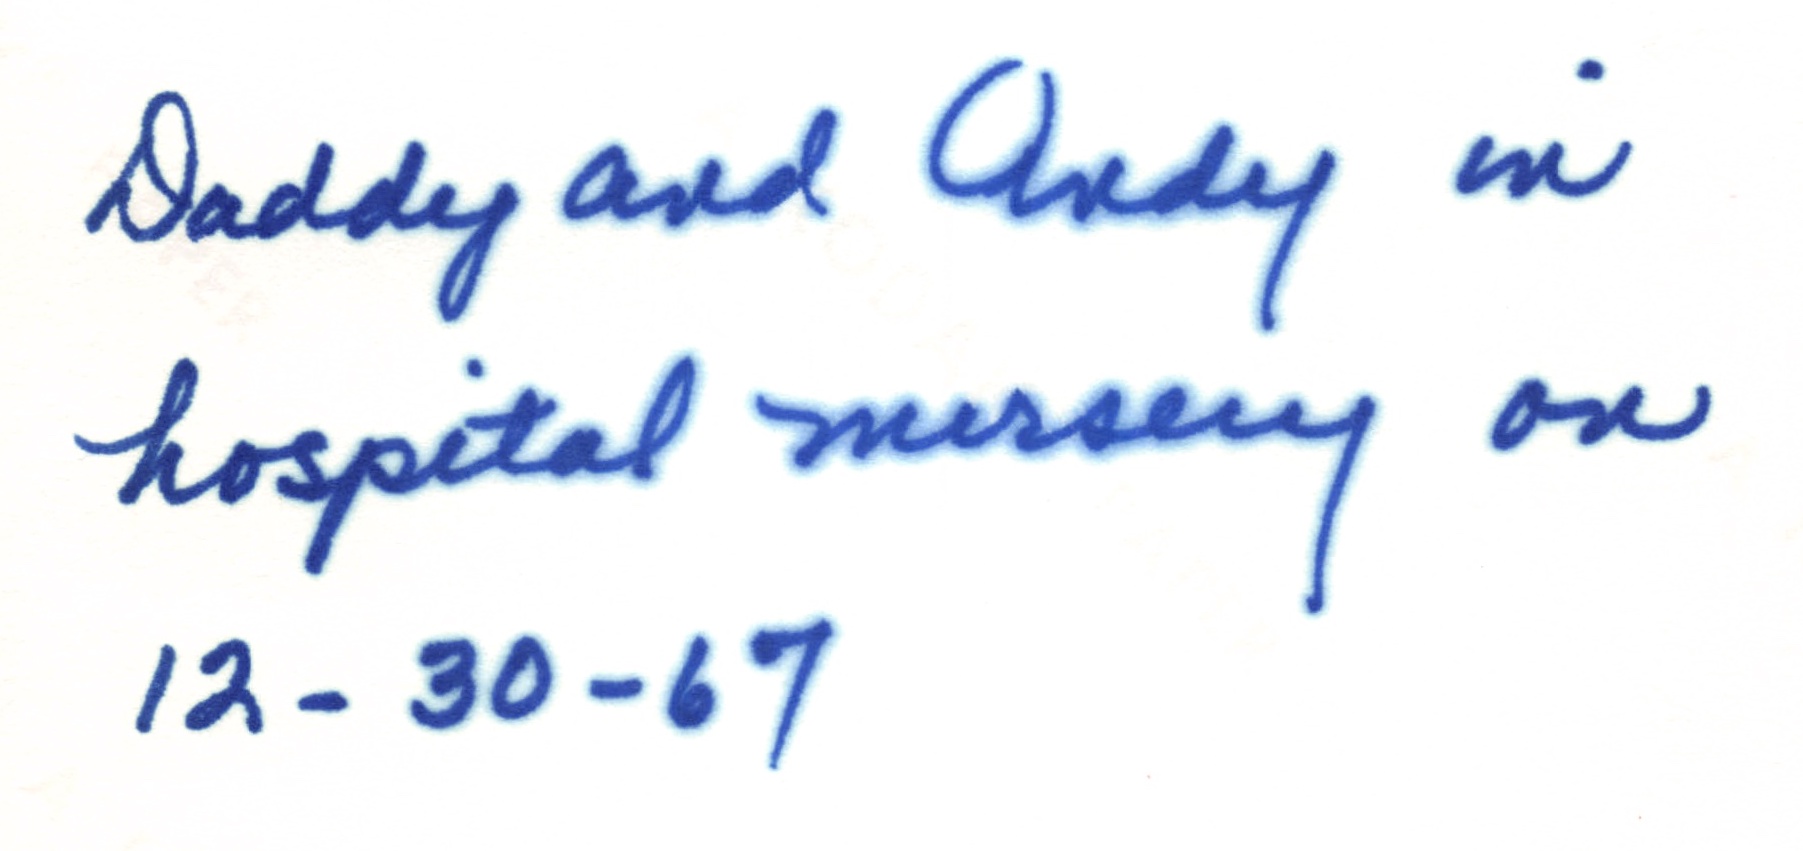 Daddy and Andy in
hospital nursery on
12-30-67